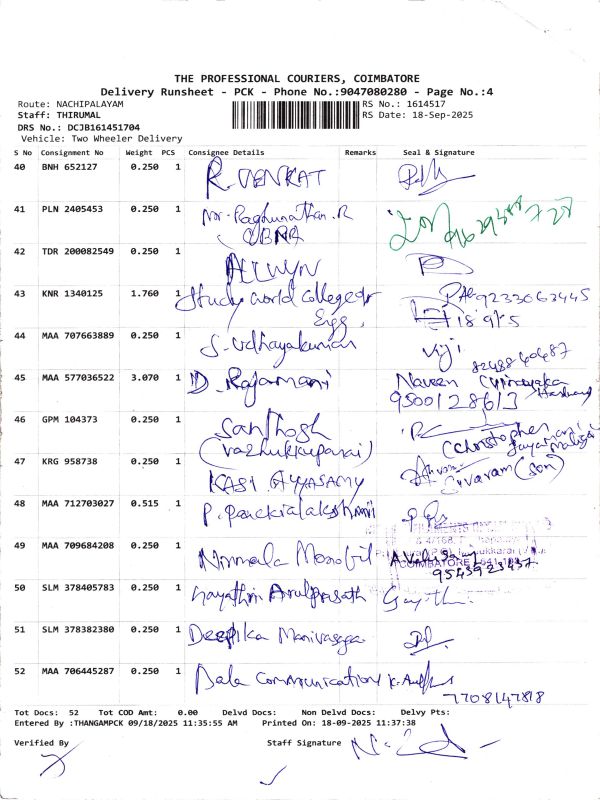 THE PROFESSIONAL COURIERS, COIMBATORE
Delivery Runsheet - PCK - Phone No.:9047080280 - Page No.:4
Route: NACHIPALAYAM RS No.: 1614517
Staff: THIRUMAL RS Date: 18-Sep-2025
DRS No.: DCJB161451704
Vehicle: Two Wheeler Delivery
S No Consignment No Weight PCS Consignee Details Remarks Seal & Signature
40 BNH 652127 0.250 1 R. VENKAT
41 PLN 2405453 0.250 1 Mr. Raghunathan.R
42 TDR 200082549 0.250 1 ALLWYN
43 KNR 1340125 1.760 1 Study world college of 9233063445
Engg, 18/9/25
44 MAA 707663889 0.250 1 S. Udhayakumar Viji
8248840687
45 MAA 577036522 3.070 1 D. Rajamani Naveen
9500128613 Husband
46 GPM 104373 0.250 1 Santhosh
(vazhukkuparai) (Christopher
47 KRG 958738 0.250 1 KASI AYYASAMY Sivaram (son)
48 MAA 712703027 0.515 1 P. Panckialakshmi
49 MAA 709684208 0.250 1 Nirmala Monofil
COIMBATORE
9543923437
50 SLM 378405783 0.250 1 Gayathri Arulprasath Gayathri
51 SLM 378382380 0.250 1 Deepika Manivasaga
52 MAA 706445287 0.250 1 Bala Communication
7708147818
Tot Docs: 52 Tot COD Amt: 0.00 Delvd Docs: Non Delvd Docs: Delvy Pts:
Entered By :THANGAMPCK 09/18/2025 11:35:55 AM Printed On: 18-09-2025 11:37:38
Verified By Staff Signature